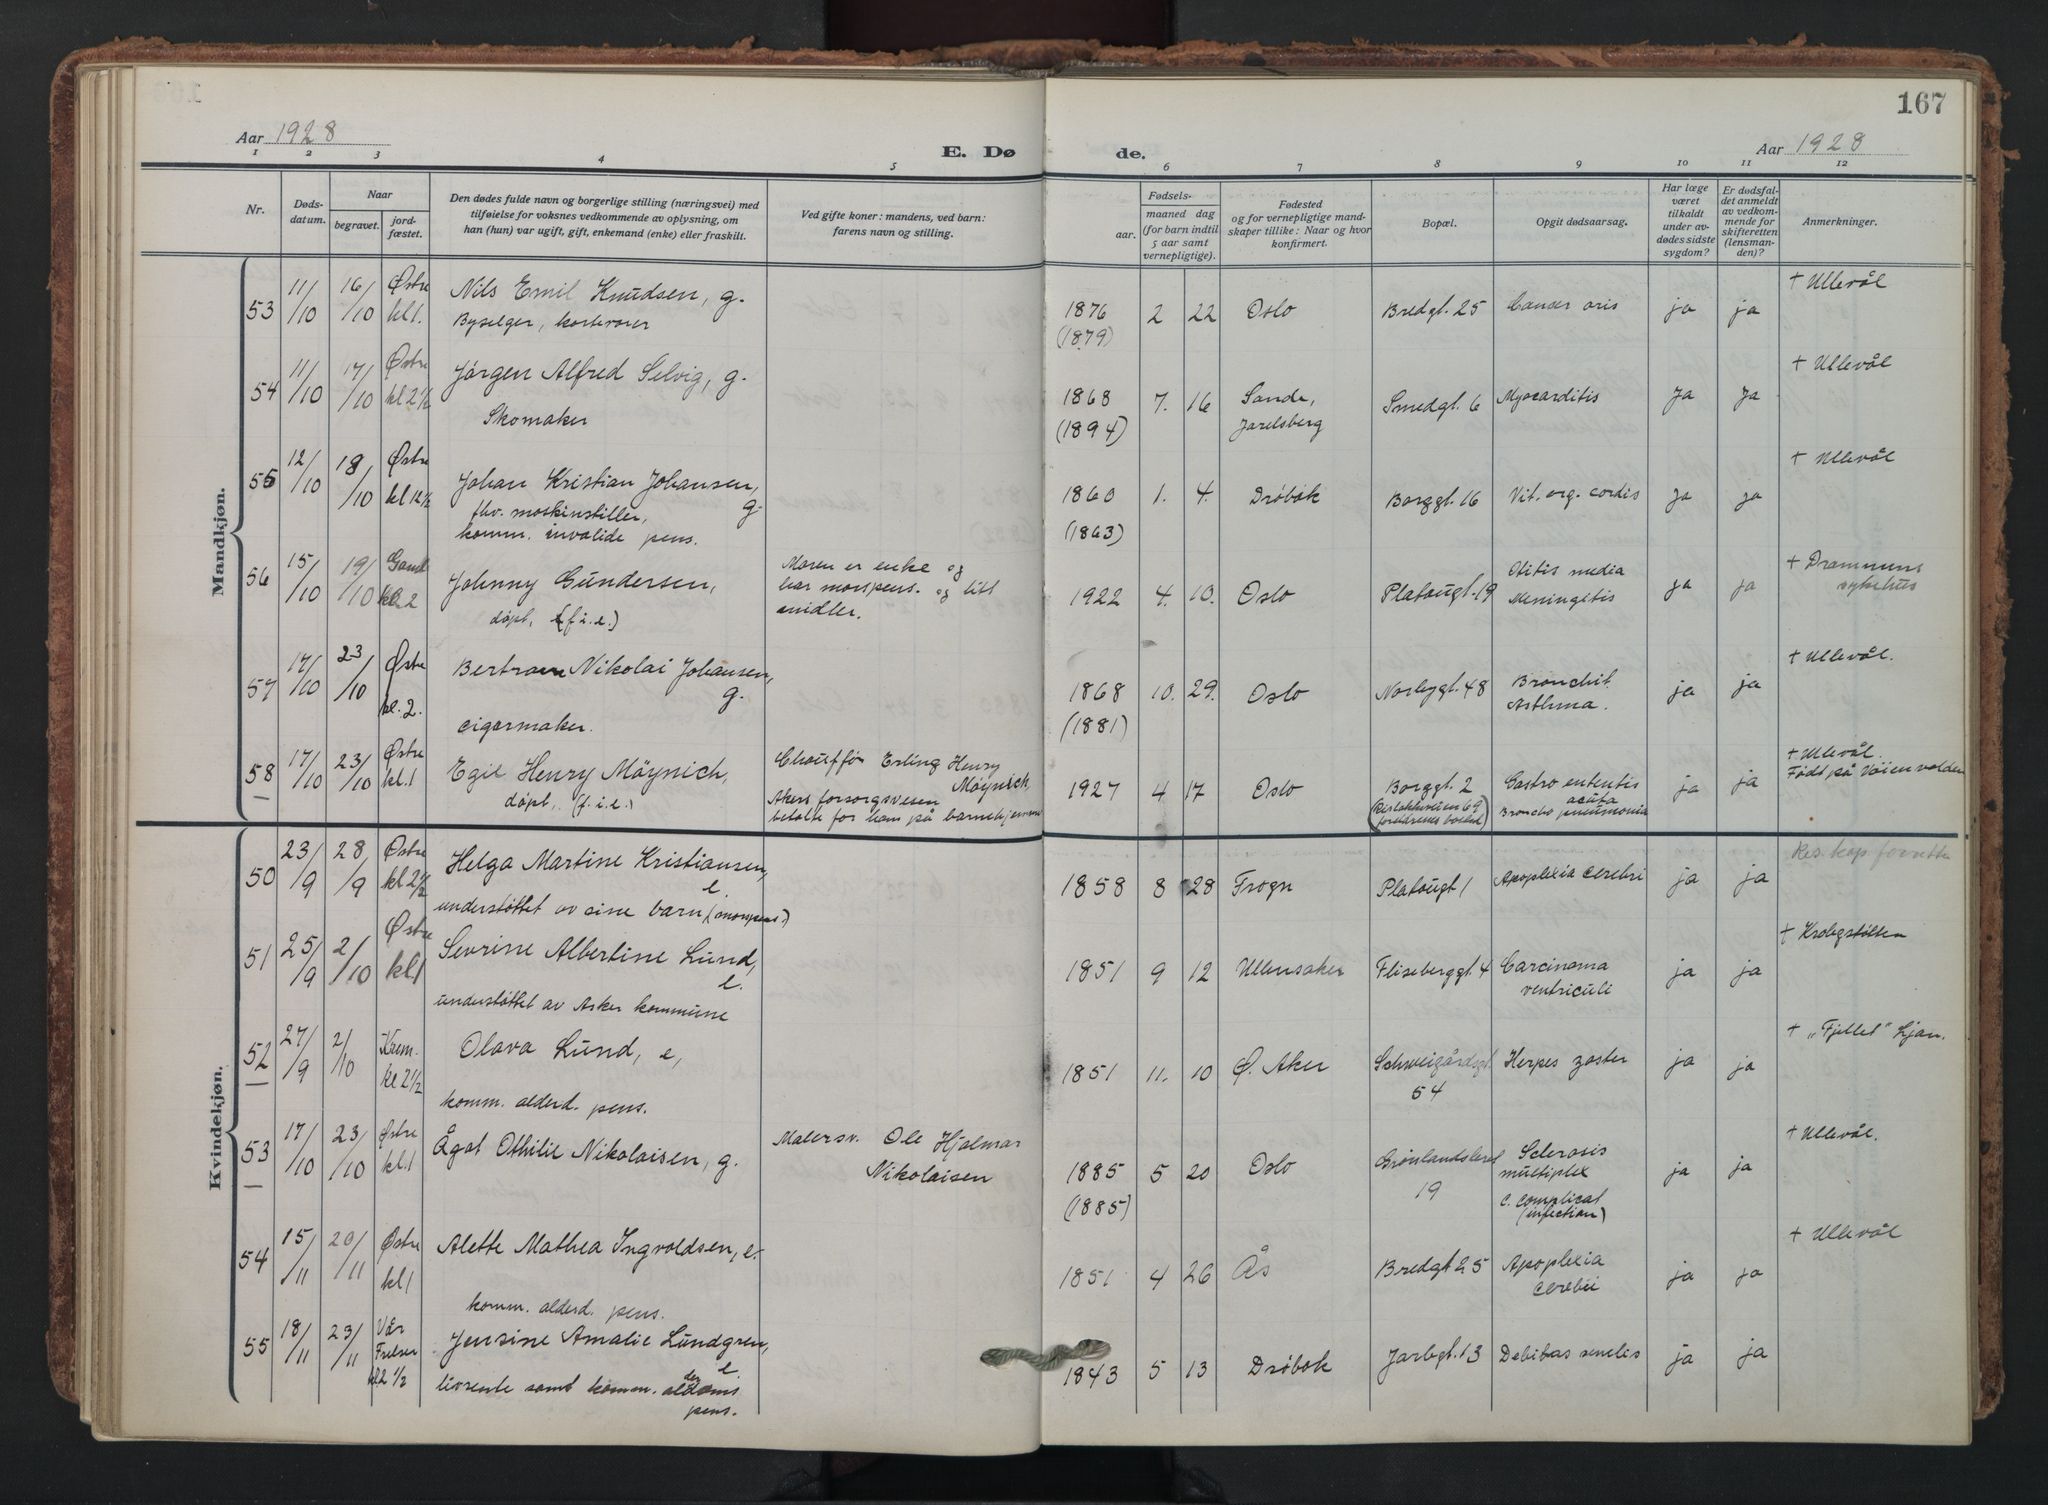 167
Aar 1928
E. Dø
de.
Aar 1928
1 2 3 4 5 6 7 8 9 10 11 12
Nr.
Døds-
datum.
Naar
begravet.
jord-
fæstet.
Den dødes fulde navn og borgerlige stilling (næringsvei) med
tilføielse for voksnes vedkommende av oplysning, om
han (hun) var ugift, gift, enkemand (enke) eller fraskilt.
Ved gifte koner: mandens, ved barn:
farens navn og stilling.
Fødsels-
aar.
maaned dag
(for barn indtil
5 aar samt
vernepligtige).
Fødested
og for vernepligtige mand-
skaper tillike: Naar og hvor
konfirmert.
Bopæl.
Opgit dødsaarsag.
Har læge
været
tilkaldt
under av-
dødes sidste
sygdom?
Er dødsfal-
det anmeldt
av vedkom-
mende for
skifteretten
(lensman-
den)?
Anmerkninger.
Mandkjøn.
53 11/10 16/10 Østre kl 1. Nils Emil Knudsen, g. 1876 2 22 Oslo Bredgt. 25 Cancer oris ja ja + Ullevål
Byselger,
(1879)
54 11/10 17/10 Østre kl 2 1/2 Jørgen Alfred Selvig, g. 1868 7. 16 Sande, Smedgt. 6 Myocarditis Ja Ja + Ullevål
Skomaker
(1894) Jarelsberg
55 12/10 18/10 Østre kl 12 1/2 Johan Kristian Johansen, g. 1860 1. 4. Drøbak Borggt. 16 Vit. org. cordis ja ja + Ullevål
fhv. maskinstiller,
komm. invalide pens.
(1863)
56 15/10 19/10 kl. 2 Johnny Gundersen, Moren er enke og 1922 4. 10. Oslo Platougt. 19 Otitis media ja ja + Drammens
døpt, (f i. e.) har morspens. og litt Meningitis sykehus
midler.
57 17/10 23/10 Østre kl. 2. Bertram Nikolai Johansen, g. 1868 10. 29. Oslo Norbygt. 48 Bronchit. ja ja + Ullevål.
cigarmaker.
(1881) Asthma.
58 17/10 23/10 Østre kl. 1 Egil Henry Möynich, Chauffør Erling Henry 1927 4 17 Oslo Borggt. 2 Gastro ententis ja ja + Ullevål.
døpt, (f. i. e.) Möynich, acuta Født på Vöienvolden
Akers forsorgsvesen Broncho pneumonia
betalte for ham på barnehjemme
Kvindekjøn.
50 23/9 28/9 Østre kl 2 1/2 Helga Martine Kristiansen, e. 1858 8 28 Frogn Platougt 1 Apoplexia cerebri ja ja Res. kap forretter
understøttet av sine barn (morspens.)
51 25/9 2/10 Østre kl 1 Sevrine Albertine Lund, e. 1851 9 12 Ullensaker Fliseberggt. 4 Carcinoma ja ja + Krohgstøtten
understøttet av Asker kommune ventriculi
52 27/9 2/10 Krem. kl 2 1/2 Olava Lund, e, 1851 11. 10 Ø. Aker Schweigårdsgt. Herpes zoster ja ja + „Fjellet“ Ljan.
komm. alderd. pens. 54
53 17/10 23/10 Østre kl. 1 Ågot Othilie Nikolaisen, g. Malersv. Ole Hjalmar 1885 5 20 Oslo Grønlandsleret Sclerosis ja ja + Ullevål.
Nikolaisen (1885) 19 multiplex
c. complicat
(infection)
54 15/11 20/11 Østre kl 1 Alette Mathea Ingvoldsen, e. 1851 4 26 Ås Bredgt 25 Apoplexia ja ja + Ullevål
komm. alderd. pens. cerebri
55 18/11 23/11 Vår Frelser kl. 2 1/2 Jensine Amalie Lundgren, e. 1843 5 13 Drøbak Jarbgt. 13 Debilitas senelis ja ja
livrente samt komm. alderdoms
pens.